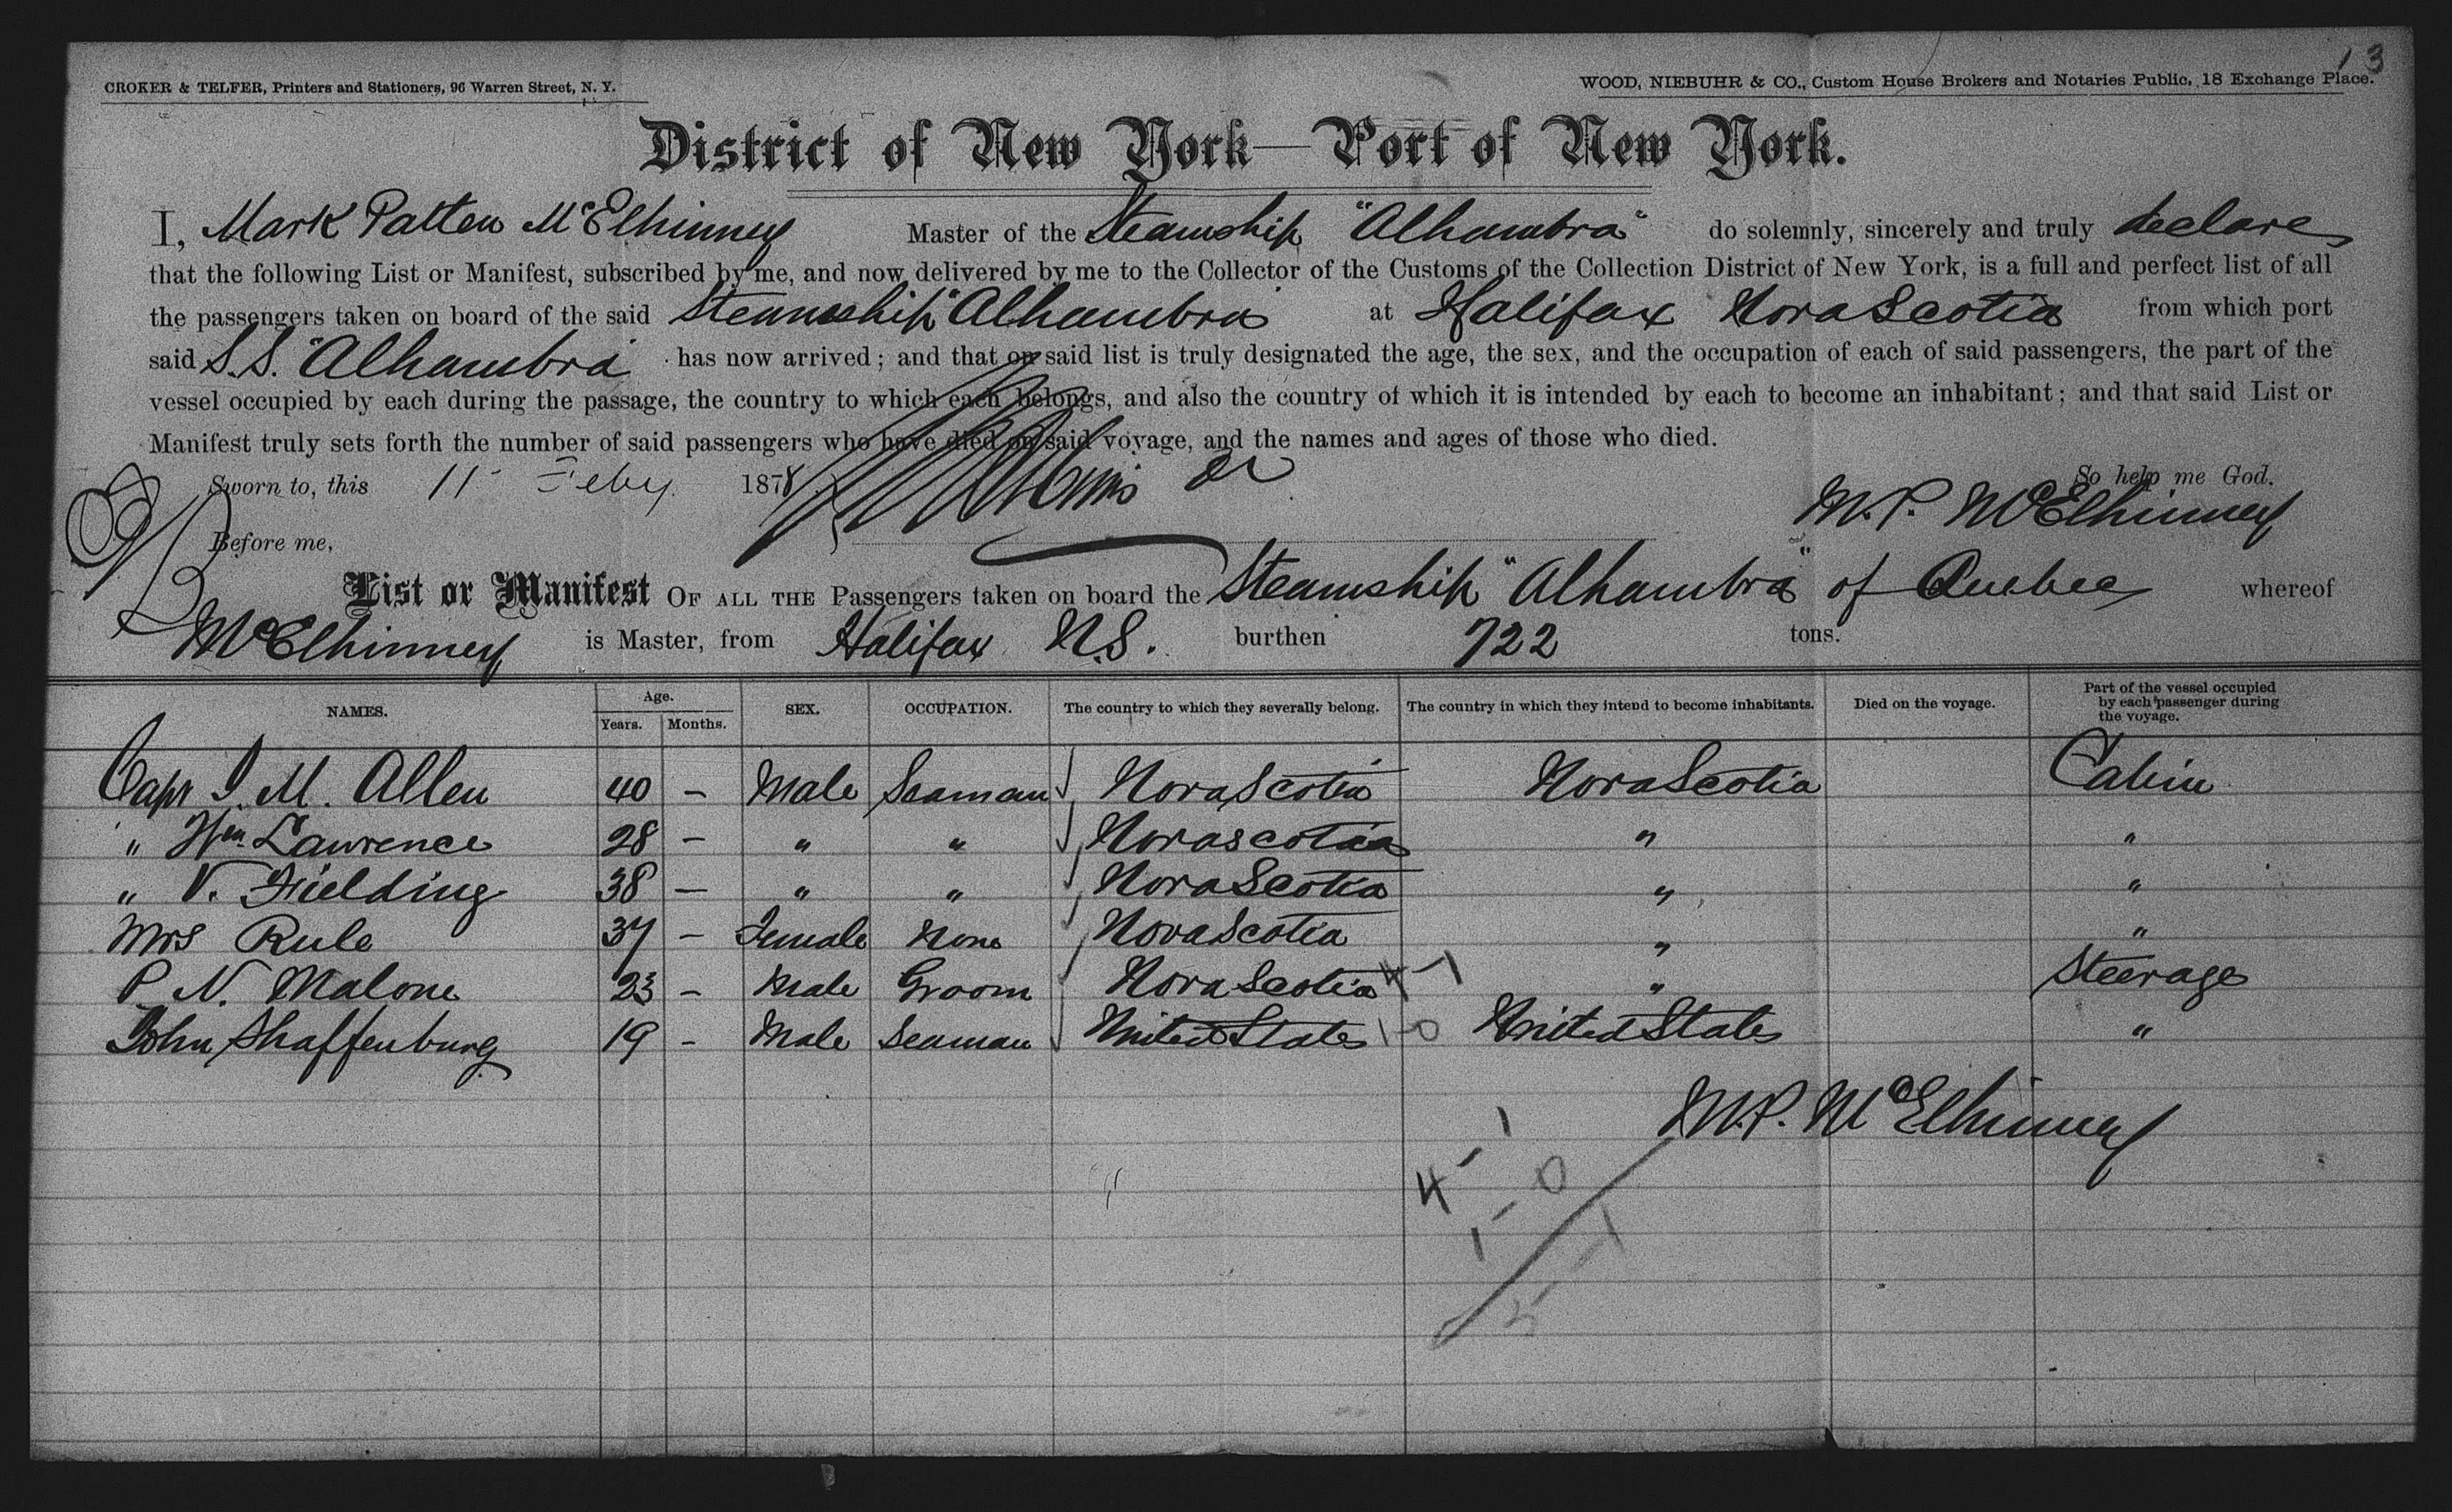 13
CROKER & TELFER, Printers and Stationers, 96 Warren Street, N. Y.
WOOD, NIEBUHR & CO., Custom House Brokers and Notaries Public, 18 Exchange Place.
District of New York—Port of New York.
I, Mark Patten McElhinney Master of the Steamship "Alhambra" do solemnly, sincerely and truly declare
that the following List or Manifest, subscribed by me, and now delivered by me to the Collector of the Customs of the Collection District of New York, is a full and perfect list of all
the passengers taken on board of the said Steamship "Alhambra" at Halifax Nova Scotia from which port
said S.S. "Alhambra" has now arrived; and that on said list is truly designated the age, the sex, and the occupation of each of said passengers, the part of the
vessel occupied by each during the passage, the country to which each belongs, and also the country of which it is intended by each to become an inhabitant; and that said List or
Manifest truly sets forth the number of said passengers who have died on said voyage, and the names and ages of those who died.
Sworn to, this 11 Feby. 1878 So help me God.
Before me, M.P. McElhinney
List or Manifest OF ALL THE Passengers taken on board the Steamship "Alhambra" of Quebec whereof
McElhinney is Master, from Halifax N.S. burthen 722 tons.
NAMES. Age. Years. Months. SEX. OCCUPATION. The country to which they severally belong. The country in which they intend to become inhabitants. Died on the voyage. Part of the vessel occupied by each passenger during the voyage.
Capt I. M. Allen 40 – Male Seaman Nova Scotia Nova Scotia Cabin
" Wm Lawrence 28 – " " Novascotia " "
" V. Fielding 38 – " " Nova Scotia " "
Mrs Rule 37 – Female None Nova Scotia " "
P. N. Malone 23 – Male Groom Nova Scotia 4-1 " Steerage
John Shaffenburg 19 – Male Seaman United States 1-0 United States "
M.P. McElhinney
4-1
1-0
5-1